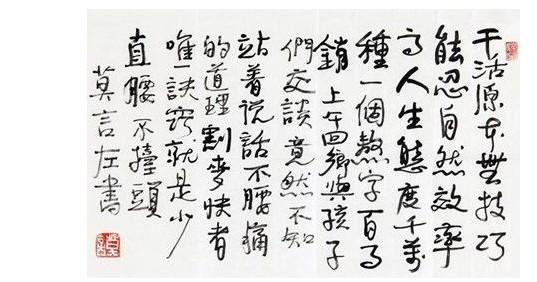 干活源本無技巧
能忍自然效率
高人生態度千萬
種一個熬字百事
銷上午回鄉與孩子
們交談竟然不知
站着说話不腰痛
的道理割麥快者
唯一訣竅就是少
直腰不擡頭
莫言左書